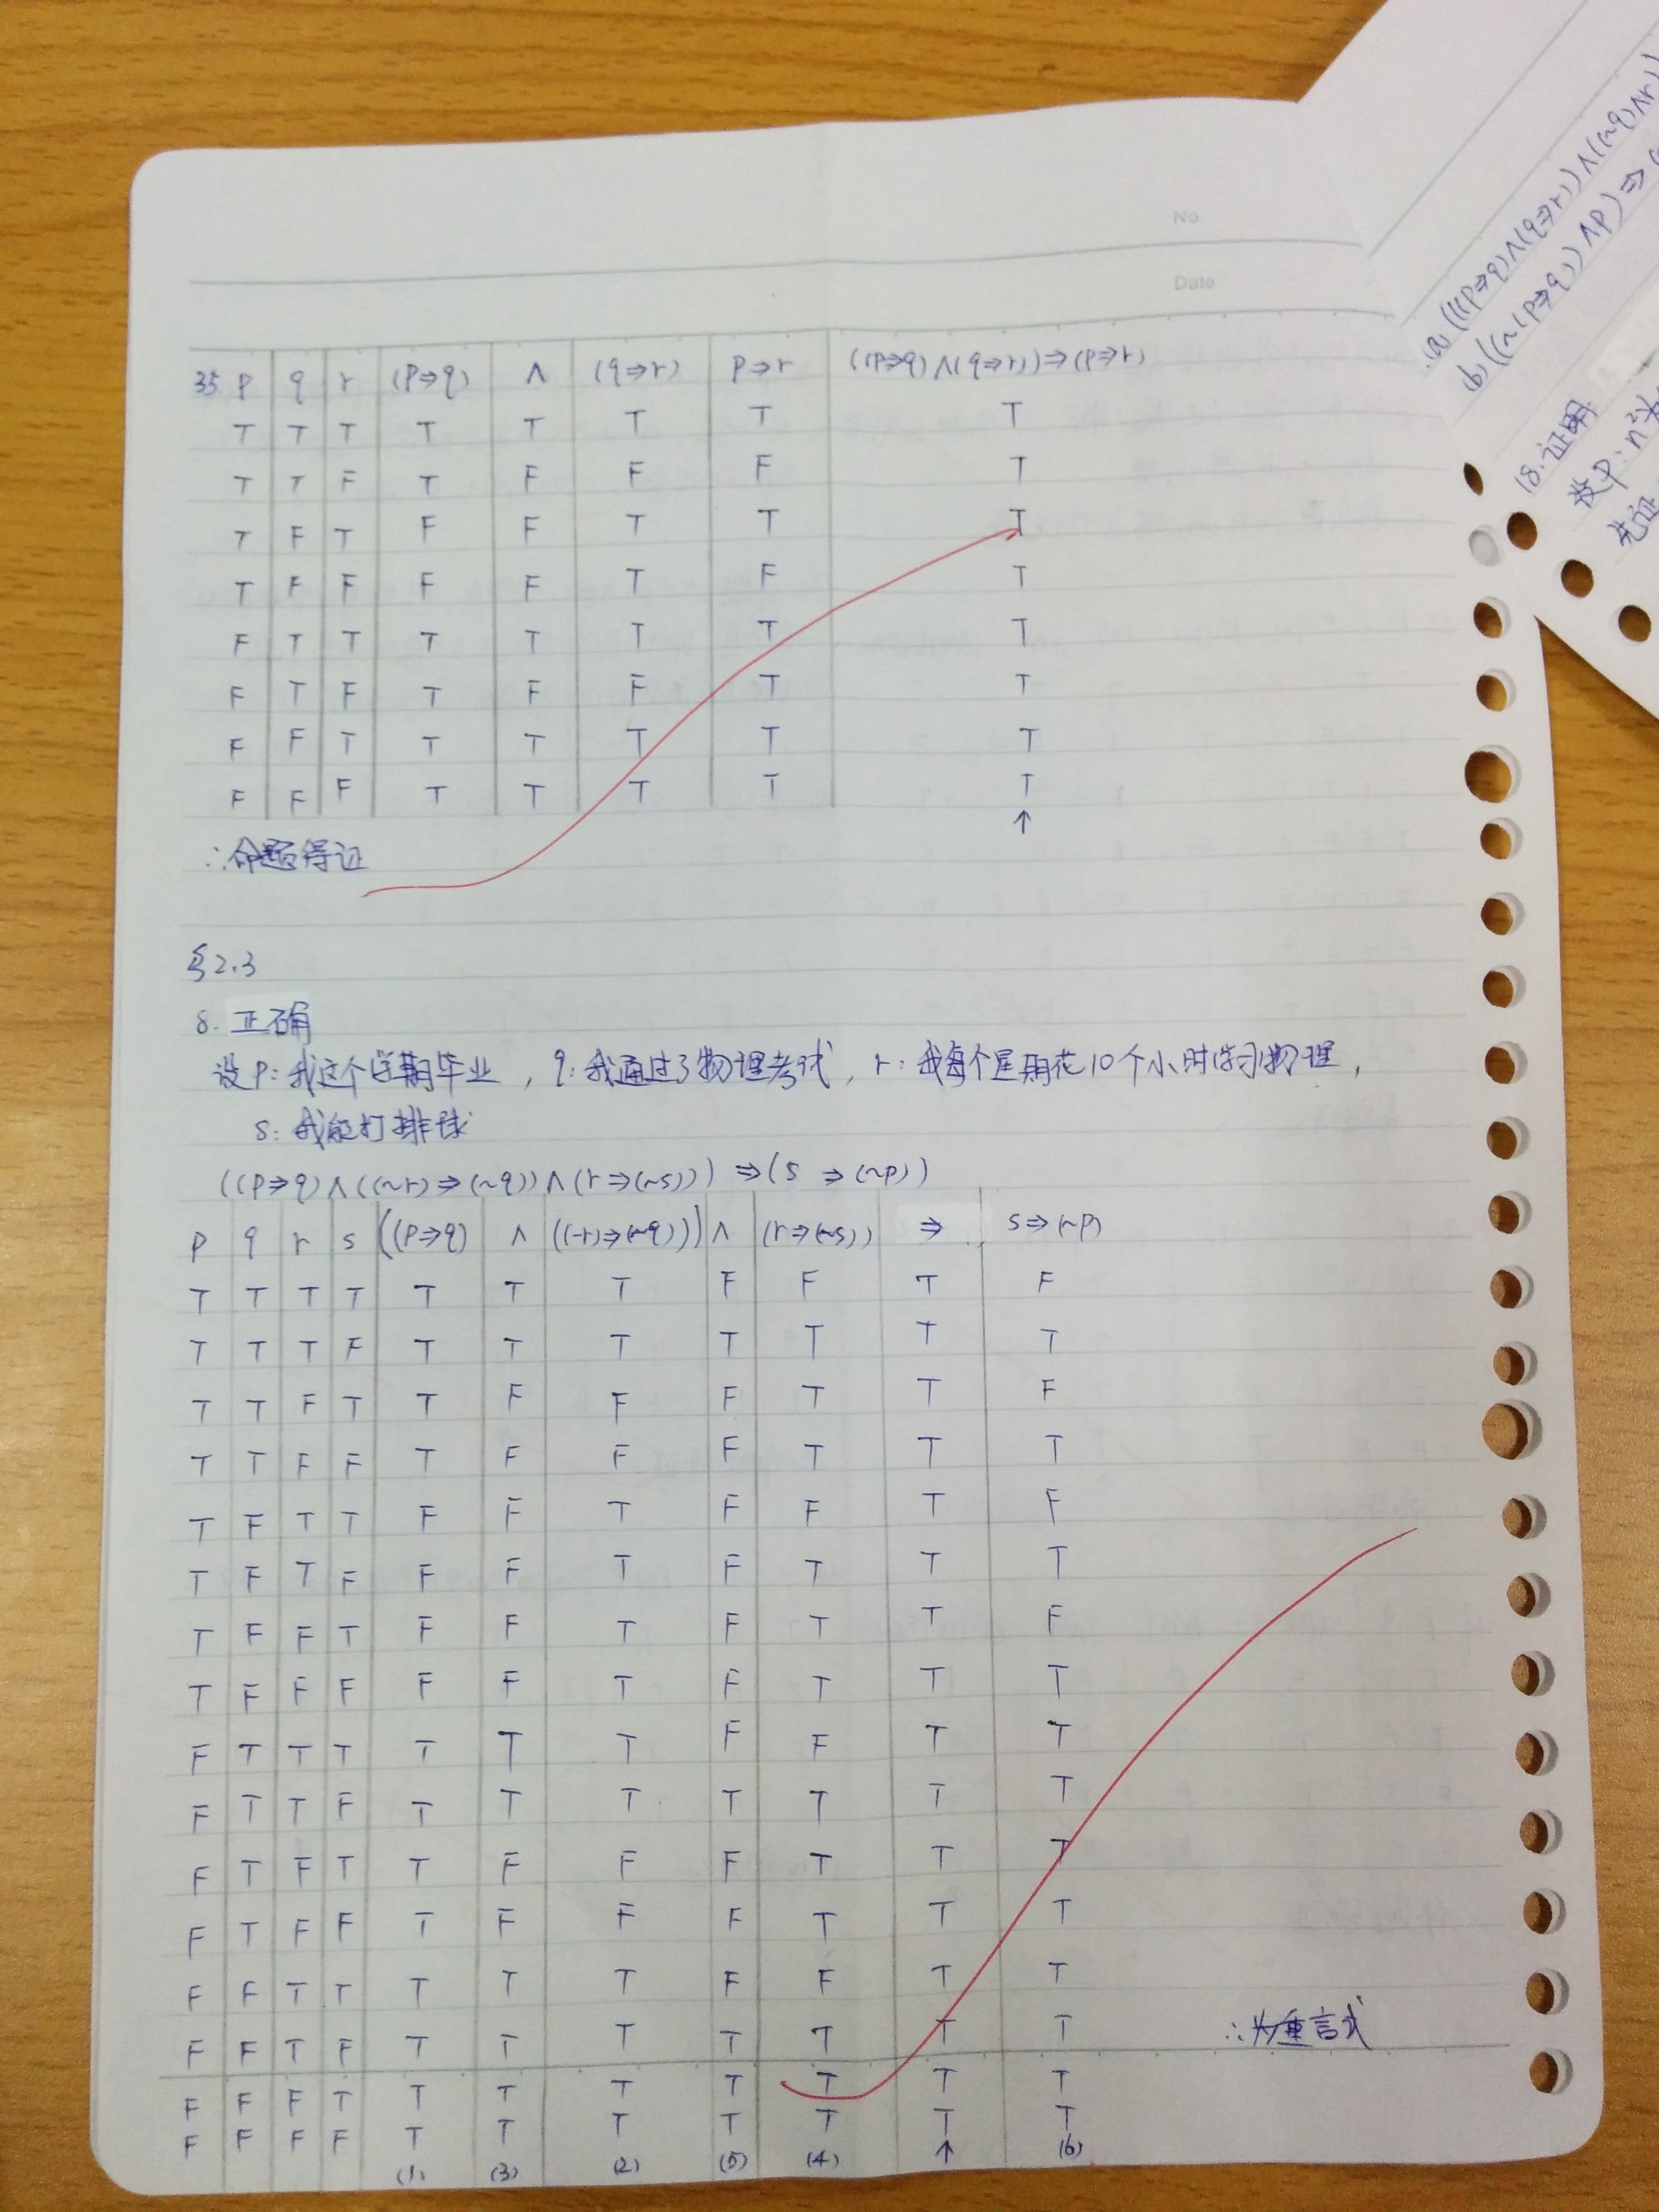 No.
Date
35 p q r (p⇒q) ∧ (q⇒r) p⇒r ((p⇒q)∧(q⇒r))⇒(p⇒r)
T T T T T T T T
T T F T F F F T
T F T F F T T T
T F F F F T F T
F T T T T T T T
F T F T F F T T
F F T T T T T T
F F F T T T T T
↑
∴命题得证
§2.3
8. 正确
设p:我这个学期毕业,q:我通过了物理考试,r:我每个星期花10个小时学习物理,
s:我能打排球
((p⇒q)∧((~r)⇒(~q))∧(r⇒(~s)))⇒(s⇒(~p))
p q r s ((p⇒q) ∧ ((~r)⇒(~q))) ∧ (r⇒(~s)) ⇒ s⇒(~p)
T T T T T T T F F T F
T T T F T T T T T T T
T T F T T F F F T T F
T T F F T F F F T T T
T F T T F F T F F T F
T F T F F F T F T T T
T F F T F F T F T T F
T F F F F F T F T T T
F T T T T T T F F T T
F T T F T T T T T T T
F T F T T F F F T T T
F T F F T F F F T T T
F F T T T T T F F T T
F F T F T T T T T T T ∴为重言式
F F F T T T T T T T T
F F F F T T T T T T T
(1) (3) (2) (5) (4) ↑ (6)
(a) (((p⇒q)∧(q⇒r))∧((~q)∧r)
(b) ((~(p⇒q))∧p)⇒
18.证明
设p:n²
先证